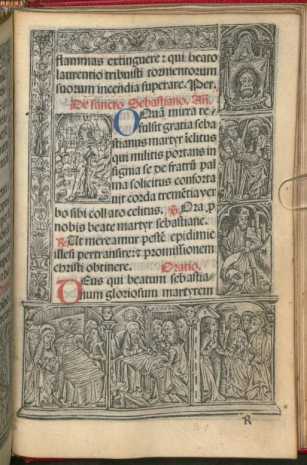 flammas extinguere: qui beato
laurentio tribuisti tormentorum
suorum incendia superare. Per.
De sancto Sebastiano. Añ.
O Quã mira re
fulsit gratia seba
stianus martyr ĩclitus
qui militis portans in
signia se de fratrũ pal
ma solicitus conforta
vit corda tremẽtia ver
bo sibi collato celitus. ℣ Ora p
nobis beate martyr sebastiane.
℟ Ut mereamur pestẽ epidimie
illesi pertransire: et promissionem
christi obtinere. Oratio.
DEus qui beatum sebastia-
num gloriosum martyrem